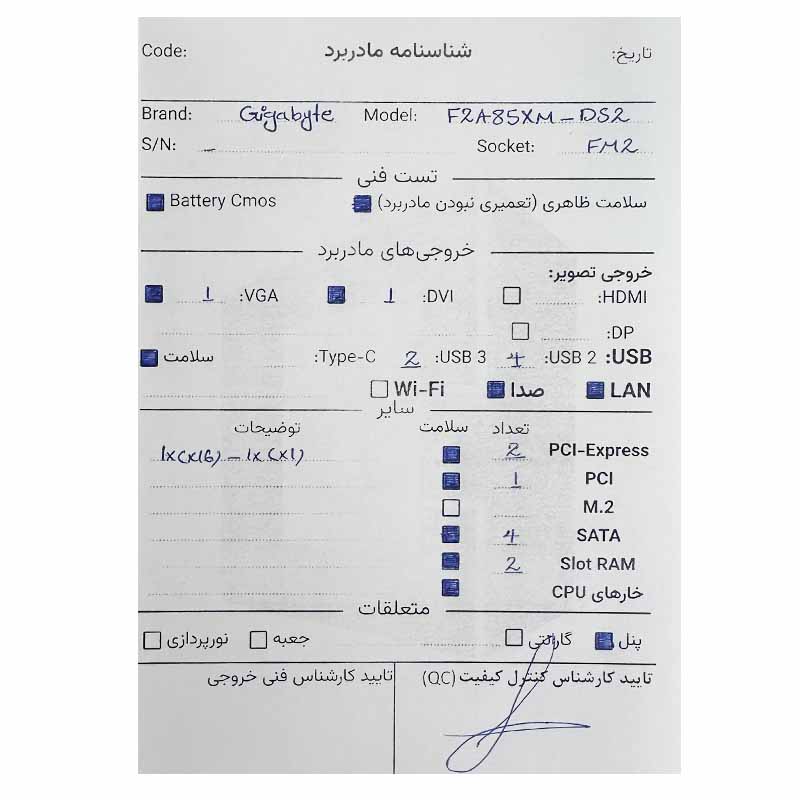 تاریخ: شناسنامه مادربرد Code:
Brand: Gigabyte Model: F2A85XM-DS2
S/N: - Socket: FM2
تست فنی
سلامت ظاهری (تعمیری نبودن مادربرد) Battery Cmos
خروجی‌های مادربرد
خروجی تصویر:
HDMI: DVI: 1 VGA: 1
DP:
USB: USB 2: 4 USB 3: 2 Type-C: سلامت
LAN صدا Wi-Fi
سایر
تعداد سلامت توضیحات
PCI-Express 2 1x(x16) - 1x(x1)
PCI 1
M.2
SATA 4
Slot RAM 2
خارهای CPU
متعلقات
پنل گارانتی جعبه نورپردازی
تایید کارشناس کنترل کیفیت (QC) تایید کارشناس فنی خروجی